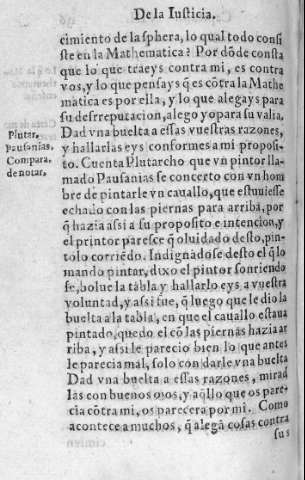 De la Iusticia.
cimiento de la sphera, lo qual todo consi
ste en la Mathematica? Por dõde consta
que lo que traeys contra mi, es contra
vos, y lo que pensays q̃ es cõtra la Mathe
matica es por ella, y lo que alegays para
su desrreputacion, alego yo para su valia.
Dad vna buelta a essas vuestras razones,
y hallarlas eys conformes a mi proposi-
to. Cuenta Plutarcho que vn pintor lla-
mado Pausanias se concerto con vn hom
bre de pintarle vn cauallo, que estuuiesse
echado con las piernas para arriba, por
q̃ hazia assi a su proposito e intencion, y
el printor paresce q̃ oluidado desto, pin-
tolo corriẽdo. Indignãdose desto el q̃ lo
mando pintar, dixo el pintor sonriendo
se, bolue la tabla y hallarlo eys a vuestra
voluntad, y assi fue, q̃ luego que le dio la
buelta a la tabla, en que el cauallo estaua
pintado, quedo el cõ las piernas hazia ar
riba, y assi le parecio bien lo que antes
le parecia mal, solo con darle vna buelta
Dad vna buelta a essas razones, mirad
las con buenos ojos, y aq̃llo que os pare-
cia cõtra mi, os parecera por mi. Como
acontece a muchos, q̃ alegã cosas contra
sus
Plutar.
Pausanias.
Compara.
de notar.